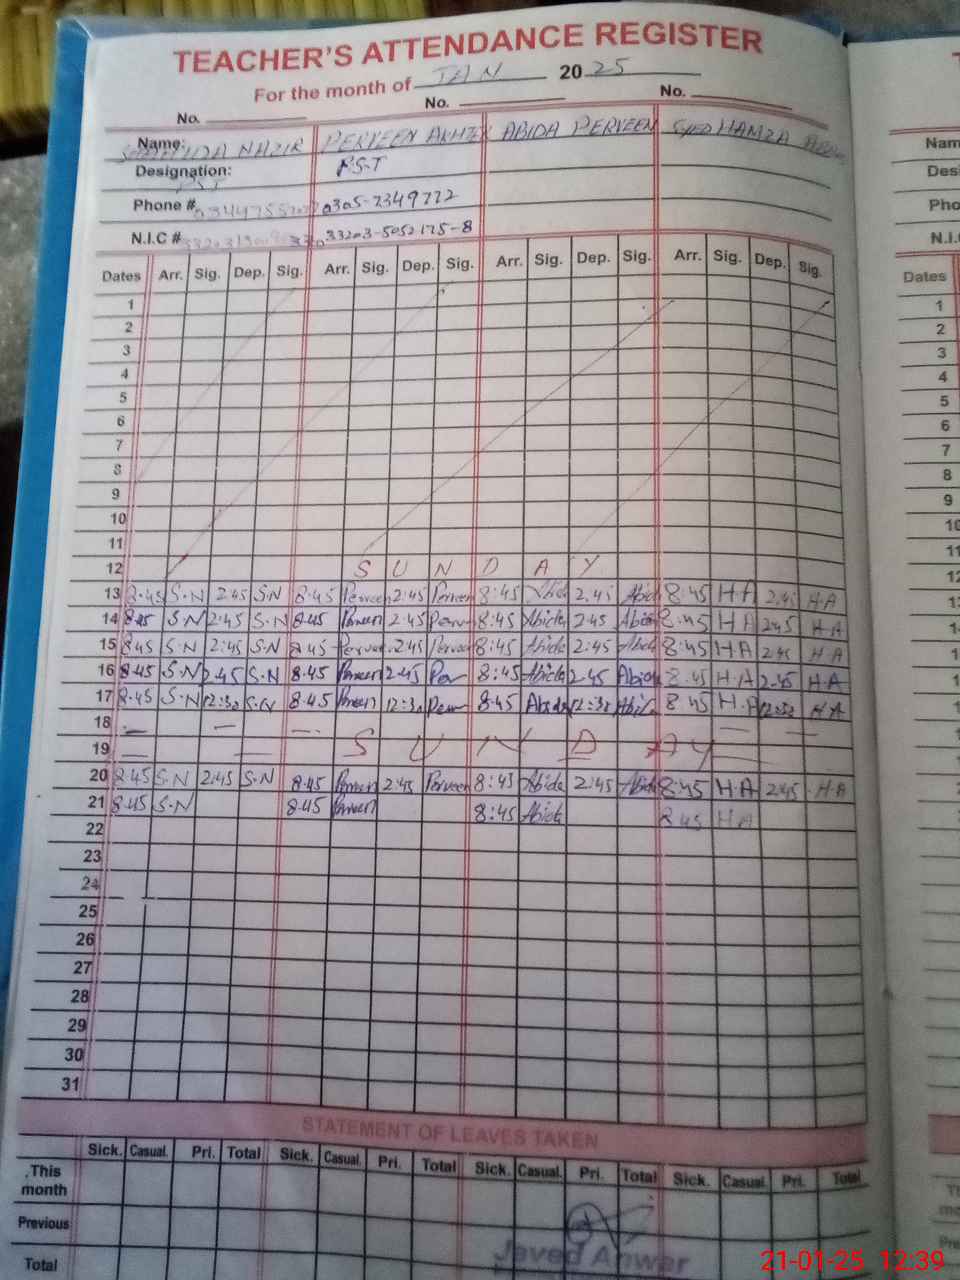 TEACHER'S ATTENDANCE REGISTER
For the month of JAN 2025
No. No. No.
Name: SHAMIDA NAZIR PERVEEN AKHTER ABIDA PERVEEN SYED HAMZA
Designation: PST P.S.T
Phone # 0305-7349772
N.I.C # 33203-5052175-8
Dates Arr. Sig. Dep. Sig. Arr. Sig. Dep. Sig. Arr. Sig. Dep. Sig. Arr. Sig. Dep. Sig.
1
2
3
4
5
6
7
8
9
10
11
12 S U N D A Y
13 8.45 S.N 2.45 S.N 8.45 Perveen 2.45 Perveen 8:45 Abida 2.45 Abida 8.45 H.A 2.45 H.A
14 8.45 S.N 2.45 S.N 8.45 Perveen 2.45 Perveen 8:45 Abida 2.45 Abida 8.45 H.A 2.45 H.A
15 8.45 S.N 2.45 S.N 8.45 Perveen 2.45 Perveen 8:45 Abida 2:45 Abida 8:45 H.A 2.45 H.A
16 8.45 S.N 2.45 S.N 8.45 Perveen 2.45 Per 8:45 Abida 2.45 Abida 8.45 H.A 2.45 H.A
17 8.45 S.N 12:30 S.N 8.45 Perveen 12:30 Perv 8:45 Abida 12:30 Abida 8.45 H.A 12:30 H.A
18
19 S U N D A Y
20 8.45 S.N 2.45 S.N 8.45 Perveen 2.45 Perveen 8:45 Abida 2:45 Abida 8:45 H.A 2.45 H.A
21 8.45 S.N 8.45 Perveen 8:45 Abida 8.45 H.A
22
23
24
25
26
27
28
29
30
31
STATEMENT OF LEAVES TAKEN
Sick. Casual. Pri. Total Sick. Casual. Pri. Total Sick. Casual. Pri. Total Sick. Casual. Pri. Total
This month
Previous
Total
Javed Anwar
21-01-25 12:39
Dates
1
2
3
4
5
6
7
8
9
10
11